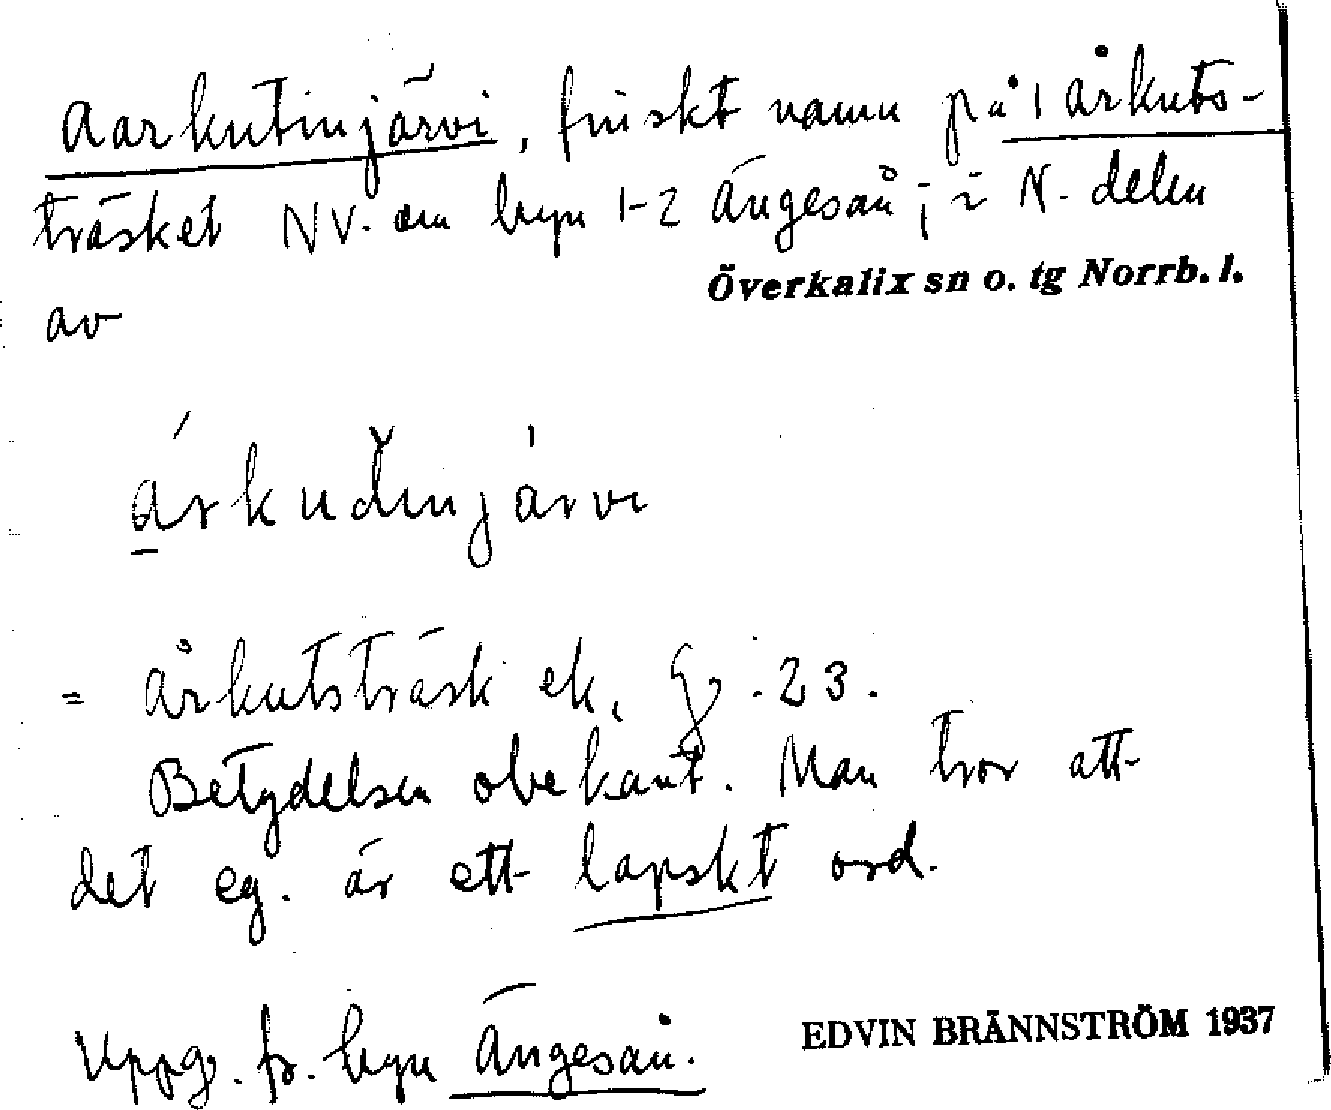 Aarkutinjärvi, finskt namn på 1 årkuts-
träsket NV. om byn 1-2 Ängesån; i N. delen
Överkalix sn o. tg Norrb. l.
av
árkuďinjàrvi
= årkutsträsk ek. 23.
Betydelsen obekant. Man tror att
det eg. är ett lapskt ord.
Uppg. fr. byn Ängesån.
EDVIN BRÄNNSTRÖM 1937